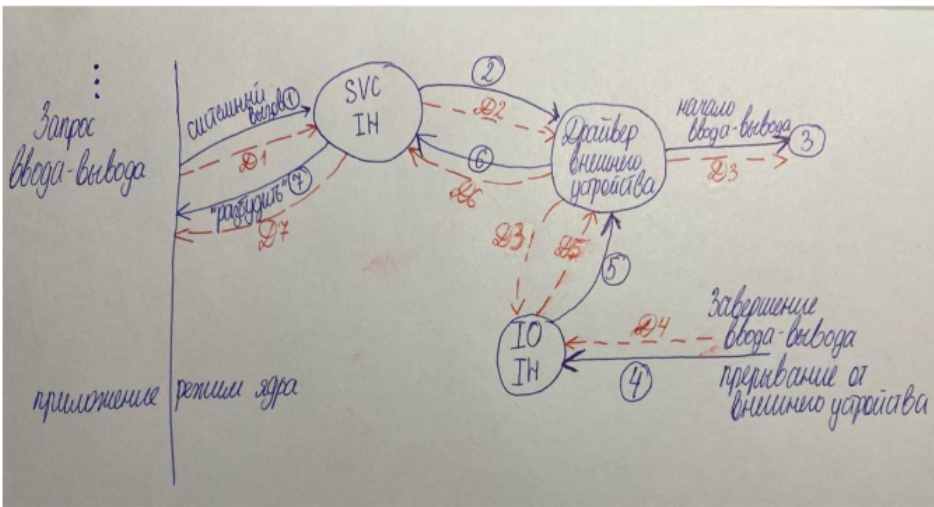 Запрос
ввода-вывода
системный
вызов ①
Д1
SVC
IH
②
Д2
⑥
Д6
"разбудить" ⑦
Д7
Драйвер
внешнего
устройства
начало
ввода-вывода
③
Д3
Д3
Д5
⑤
IO
IH
Д4
④
Завершение
ввода-вывода
прерывание от
внешнего устройства
приложение
режим ядра